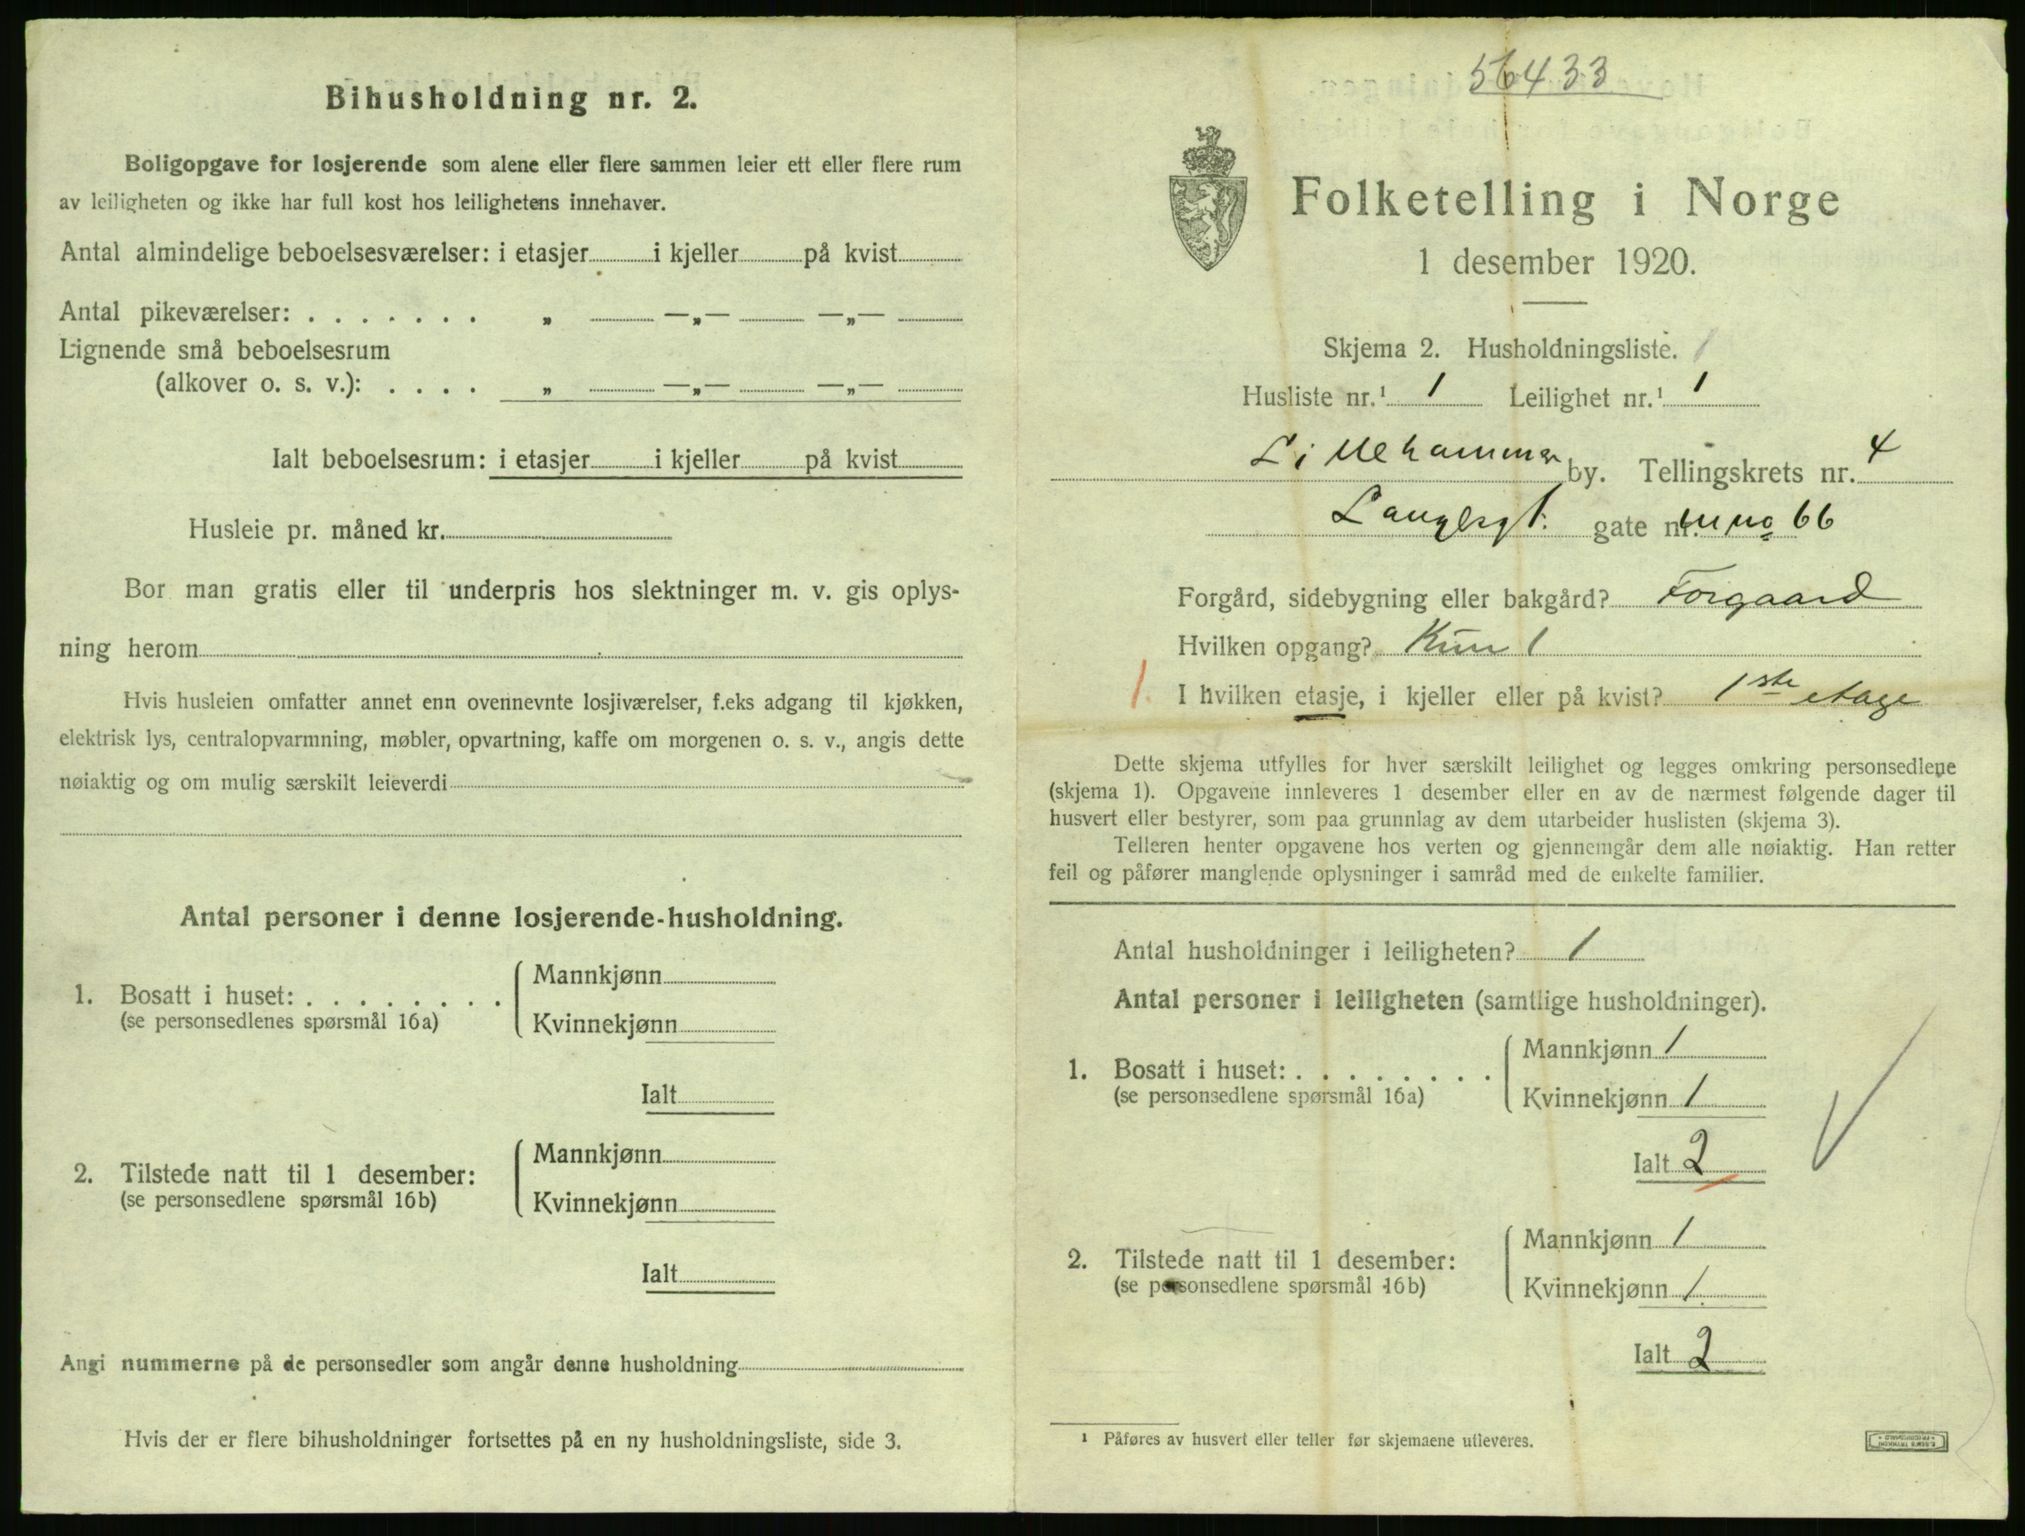 Bihusholdning nr. 2.
Boligopgave for losjerende som alene eller flere sammen leier ett eller flere rum
av leiligheten og ikke har full kost hos leilighetens innehaver.
Antal almindelige beboelsesværelser: i etasjer i kjeller på kvist
Antal pikeværelser: . . . . . . . „ —„— —„—
Lignende små beboelsesrum
(alkover o. s. v.): . . . . „ —„— —„—
Ialt beboelsesrum: i etasjer i kjeller på kvist
Husleie pr. måned kr.
Bor man gratis eller til underpris hos slektninger m. v. gis oplys-
ning herom
Hvis husleien omfatter annet enn ovennevnte losjiværelser, f.eks adgang til kjøkken,
elektrisk lys, centralopvarmning, møbler, opvartning, kaffe om morgenen o. s. v., angis dette
nøiaktig og om mulig særskilt leieverdi
Antal personer i denne losjerende-husholdning.
1. Bosatt i huset: . . . . . . . . Mannkjønn
(se personsedlenes spørsmål 16a) Kvinnekjønn
Ialt
2. Tilstede natt til 1 desember: Mannkjønn
(se personsedlene spørsmål 16b) Kvinnekjønn
Ialt
Angi nummerne på de personsedler som angår denne husholdning
Hvis der er flere bihusholdninger fortsettes på en ny husholdningsliste, side 3.
56433
Folketelling i Norge
1 desember 1920.
Skjema 2. Husholdningsliste. 1
Husliste nr.¹ 1 Leilighet nr.¹ 1
Lillehammer by. Tellingskrets nr. 4
gate nr. 66
Forgård, sidebygning eller bakgård? Forgaard
Hvilken opgang? Kun 1
1. I hvilken etasje, i kjeller eller på kvist? 1ste etage
Dette skjema utfylles for hver særskilt leilighet og legges omkring personsedlene
(skjema 1). Opgavene innleveres 1 desember eller en av de nærmest følgende dager til
husvert eller bestyrer, som paa grunnlag av dem utarbeider huslisten (skjema 3).
Telleren henter opgavene hos verten og gjennemgår dem alle nøiaktig. Han retter
feil og påfører manglende oplysninger i samråd med de enkelte familier.
Antal husholdninger i leiligheten? 1
Antal personer i leiligheten (samtlige husholdninger).
1. Bosatt i huset: . . . . . . . . Mannkjønn 1
(se personsedlene spørsmål 16a) Kvinnekjønn 1
Ialt 2
2. Tilstede natt til 1 desember: Mannkjønn 1
(se personsedlene spørsmål 16b) Kvinnekjønn 1
Ialt 2
¹ Påføres av husvert eller teller før skjemaene utleveres.